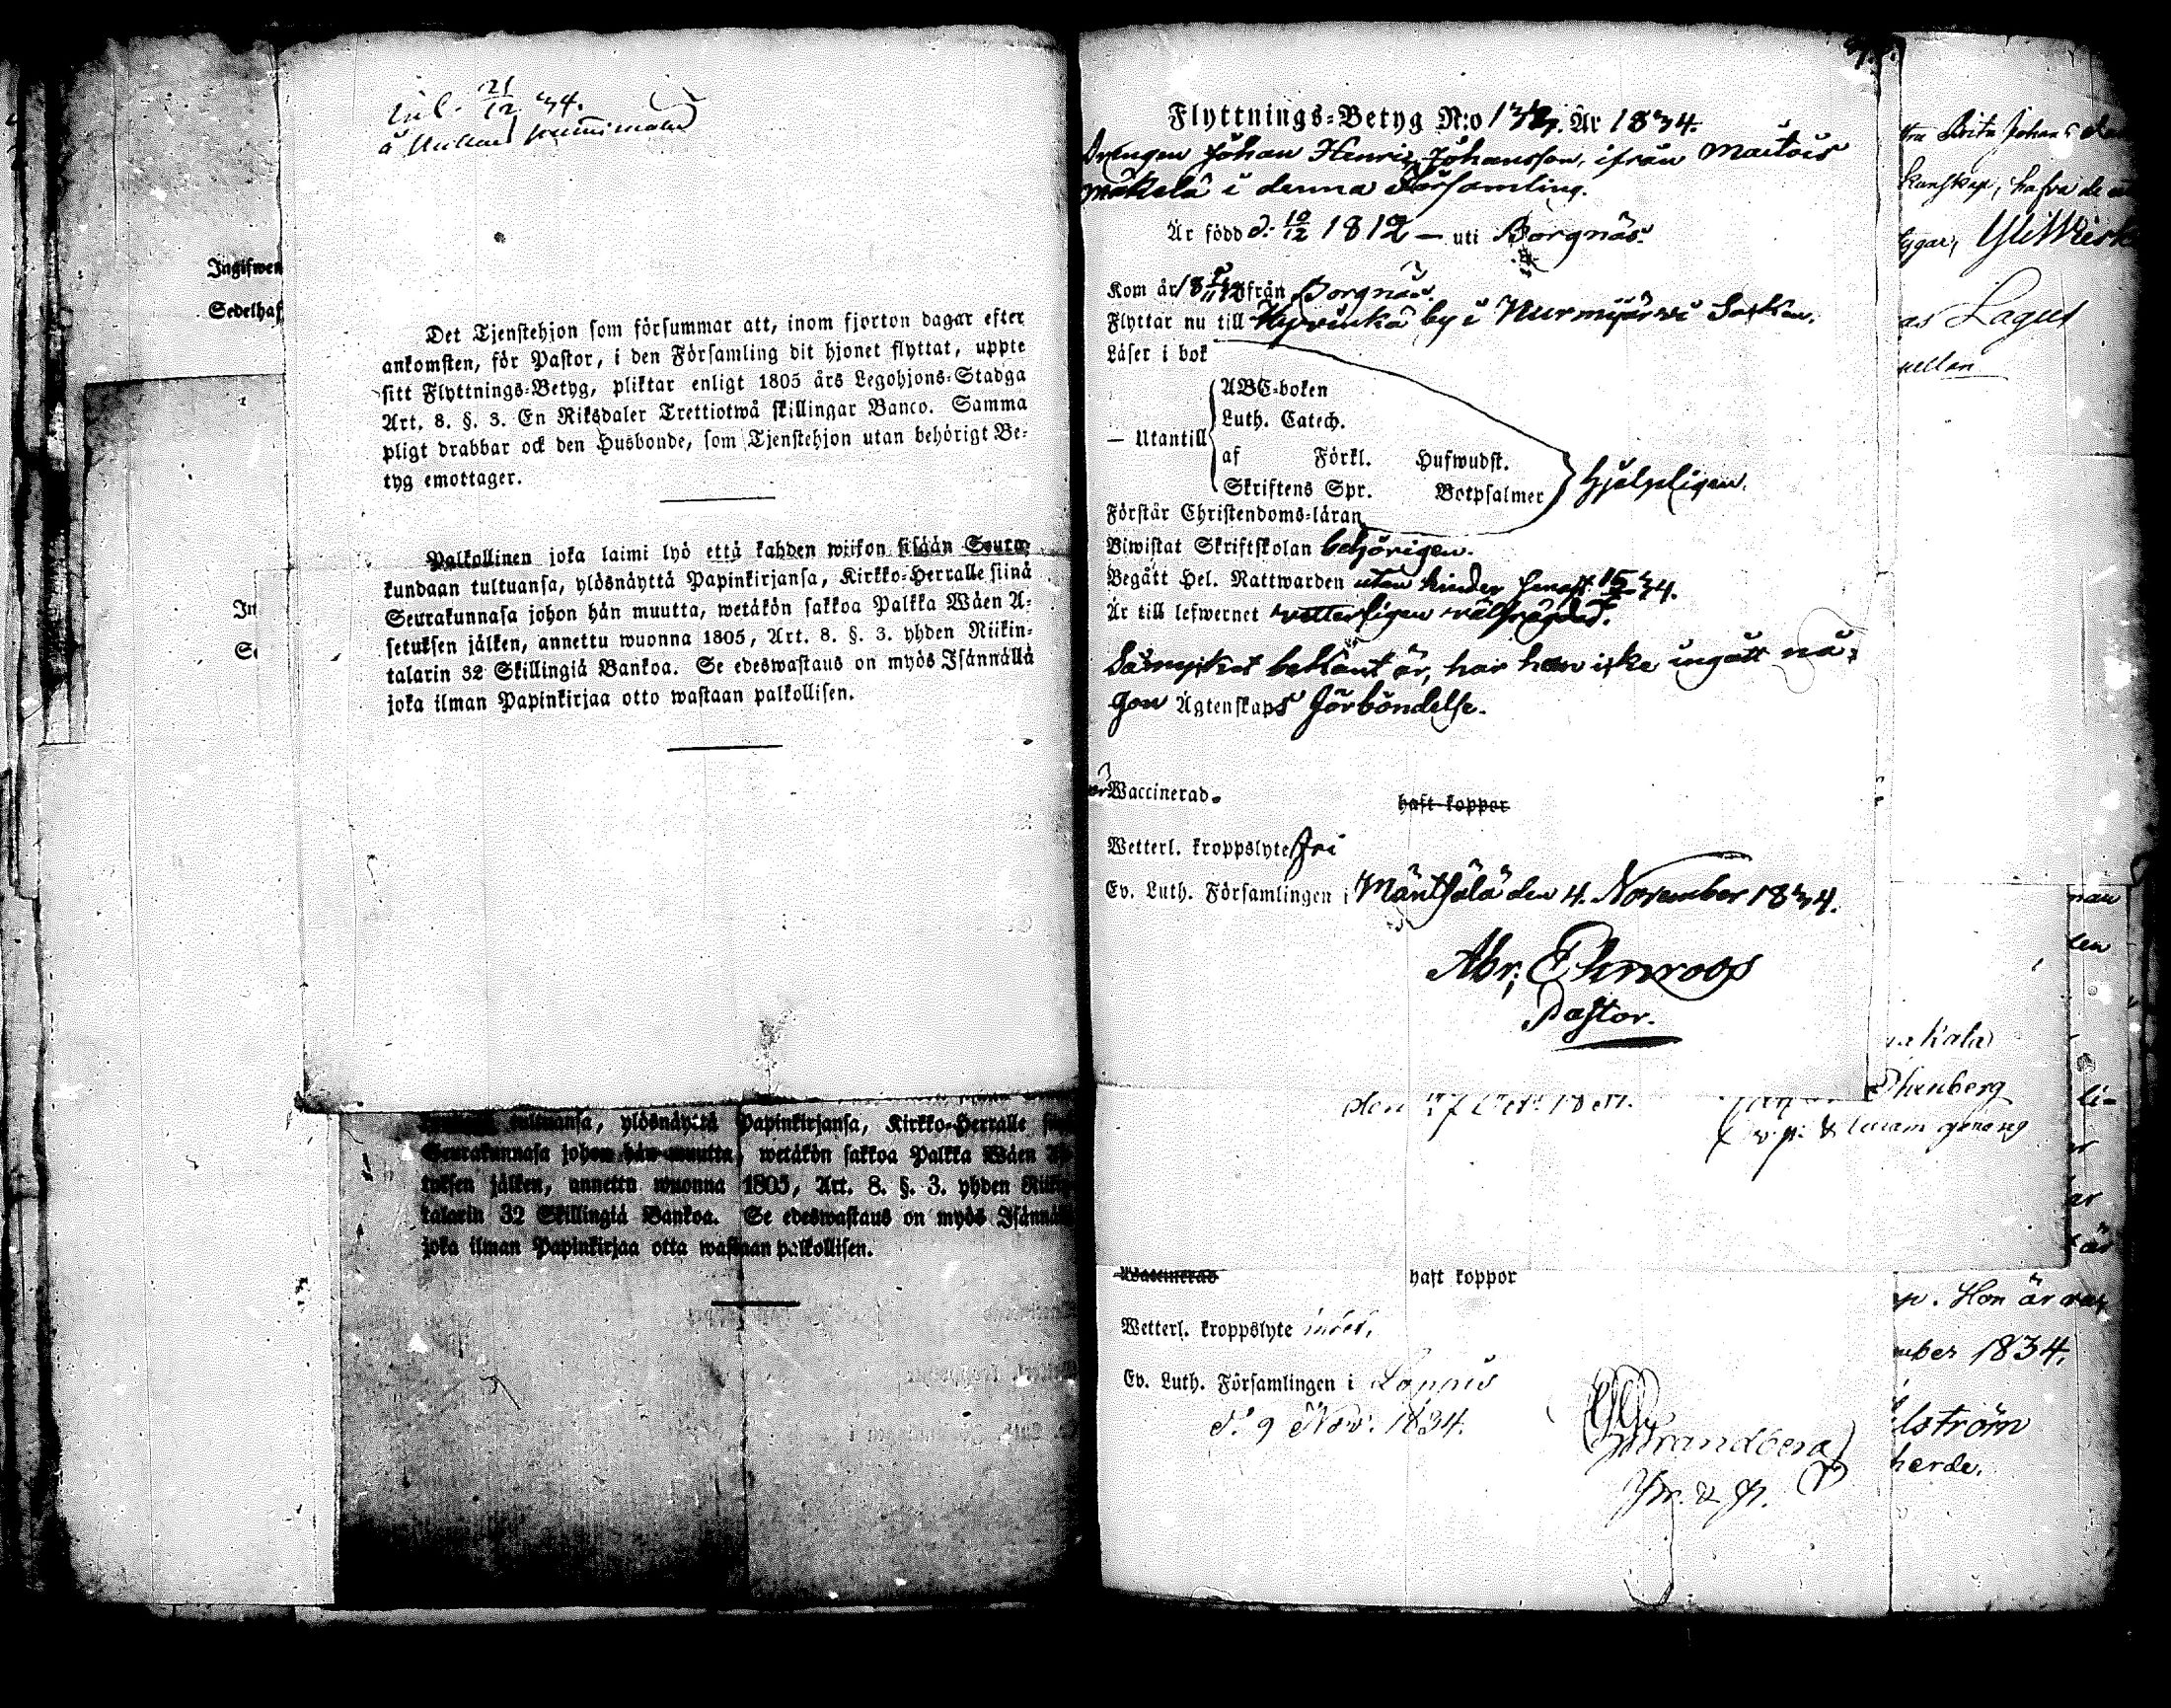 inl. 21/12 34.
Ingifwen
Sedelhaf
Det Tjenstehjon som försummar att, inom fjorton dagar efter
ankomsten, för Pastor, i den Församling dit hjonet flyttat, uppte
sitt Flyttnings-Betyg, pliktar enligt 1805 års Legohjons-Stadga
Art. 8. §. 3. En Riksdaler Trettiotwå skillingar Banco. Samma
pligt drabbar ock den Husbonde, som Tjenstehjon utan behörigt Be-
tyg emottager.
Palkollinen joka laimi lyö että kahden wiikon sisään Seura-
kundaan tultuansa, ylösnäyttä Papinkirjansa, Kirkko-Herralle siinä
Seurakunnasa johon hän muutta, wetäkön sakkoa Palkka Wäen A-
setuksen jälken, annettu wuonna 1805, Art. 8. §. 3. yhden Riikin-
talarin 32 Skillingiä Bankoa. Se edeswastaus on myös Isännällä
joka ilman Papinkirjaa otto wastaan palkollisen.
tultuansa, ylösnäyttä Papinkirjansa, Kirkko-Herralle
Seurakunnasa johon hän muutta, wetäkön sakkoa Palkka Wäen
tuksen jälken, annettu wuonna 1805, Art. 8. §. 3. yhden
talarin 32 Skillingiä Bankoa. Se edeswastaus on myös
joka ilman Papinkirjaa otta wastaan palkollisen.
Flyttnings-Betyg N:o År 1834.
Drengen Johan Henric Johansson, ifrån Maitois
Mäkelä i denna Församling.
Är född d. 10/12 1812 — uti Borgnäs.
Kom år från Borgnäs.
Flyttar nu till Hyvinkä by i Nurmijärvi Sockn.
Läser i bok
— Utantill
ABC-boken
Luth. Catech.
af Förkl. Hufwudst.
Skriftens Spr. Botpsalmer
hjelpligen.
Förstår Christendoms-läran
Biwistat Skriftskolan behörigen.
Begått Hel. Nattwarden utan hinder senast 34.
Är till lefwernet vetterligen välfrägdad.
Såmycket bekant är, har han icke ingått nå-
gon Ägtenskaps förbindelse.
är Waccinerad. haft koppor
Wetterl. kroppslyte fri
Ev. Luth. Församlingen i Mäntsälä den 4. November 1834.
Abr. Ehnroos
Pastor.
Waccinerad haft koppor
Wetterl. kroppslyte intet.
Ev. Luth. Församlingen i Loppis
d. 9 Nov. 1834.
Strandberg
Brita Johans
kunskap, hafva de
Lagus
kala
Hon är
mber 1834.
lström
herde.